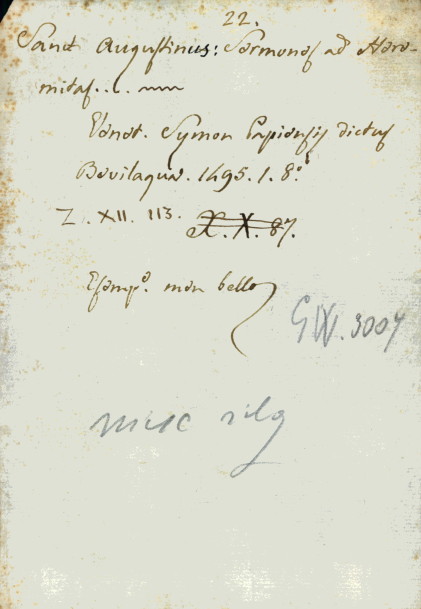 22.
Sanct Augustinus: Sermones ad Here-
mitas....
Venet. Symon Papiensis dictus
Bevilaqua. 1495. 1. 8º.
Z. XII. 113. X. X. 87.
Esempº. non bello
GW. 3007
misc rilg